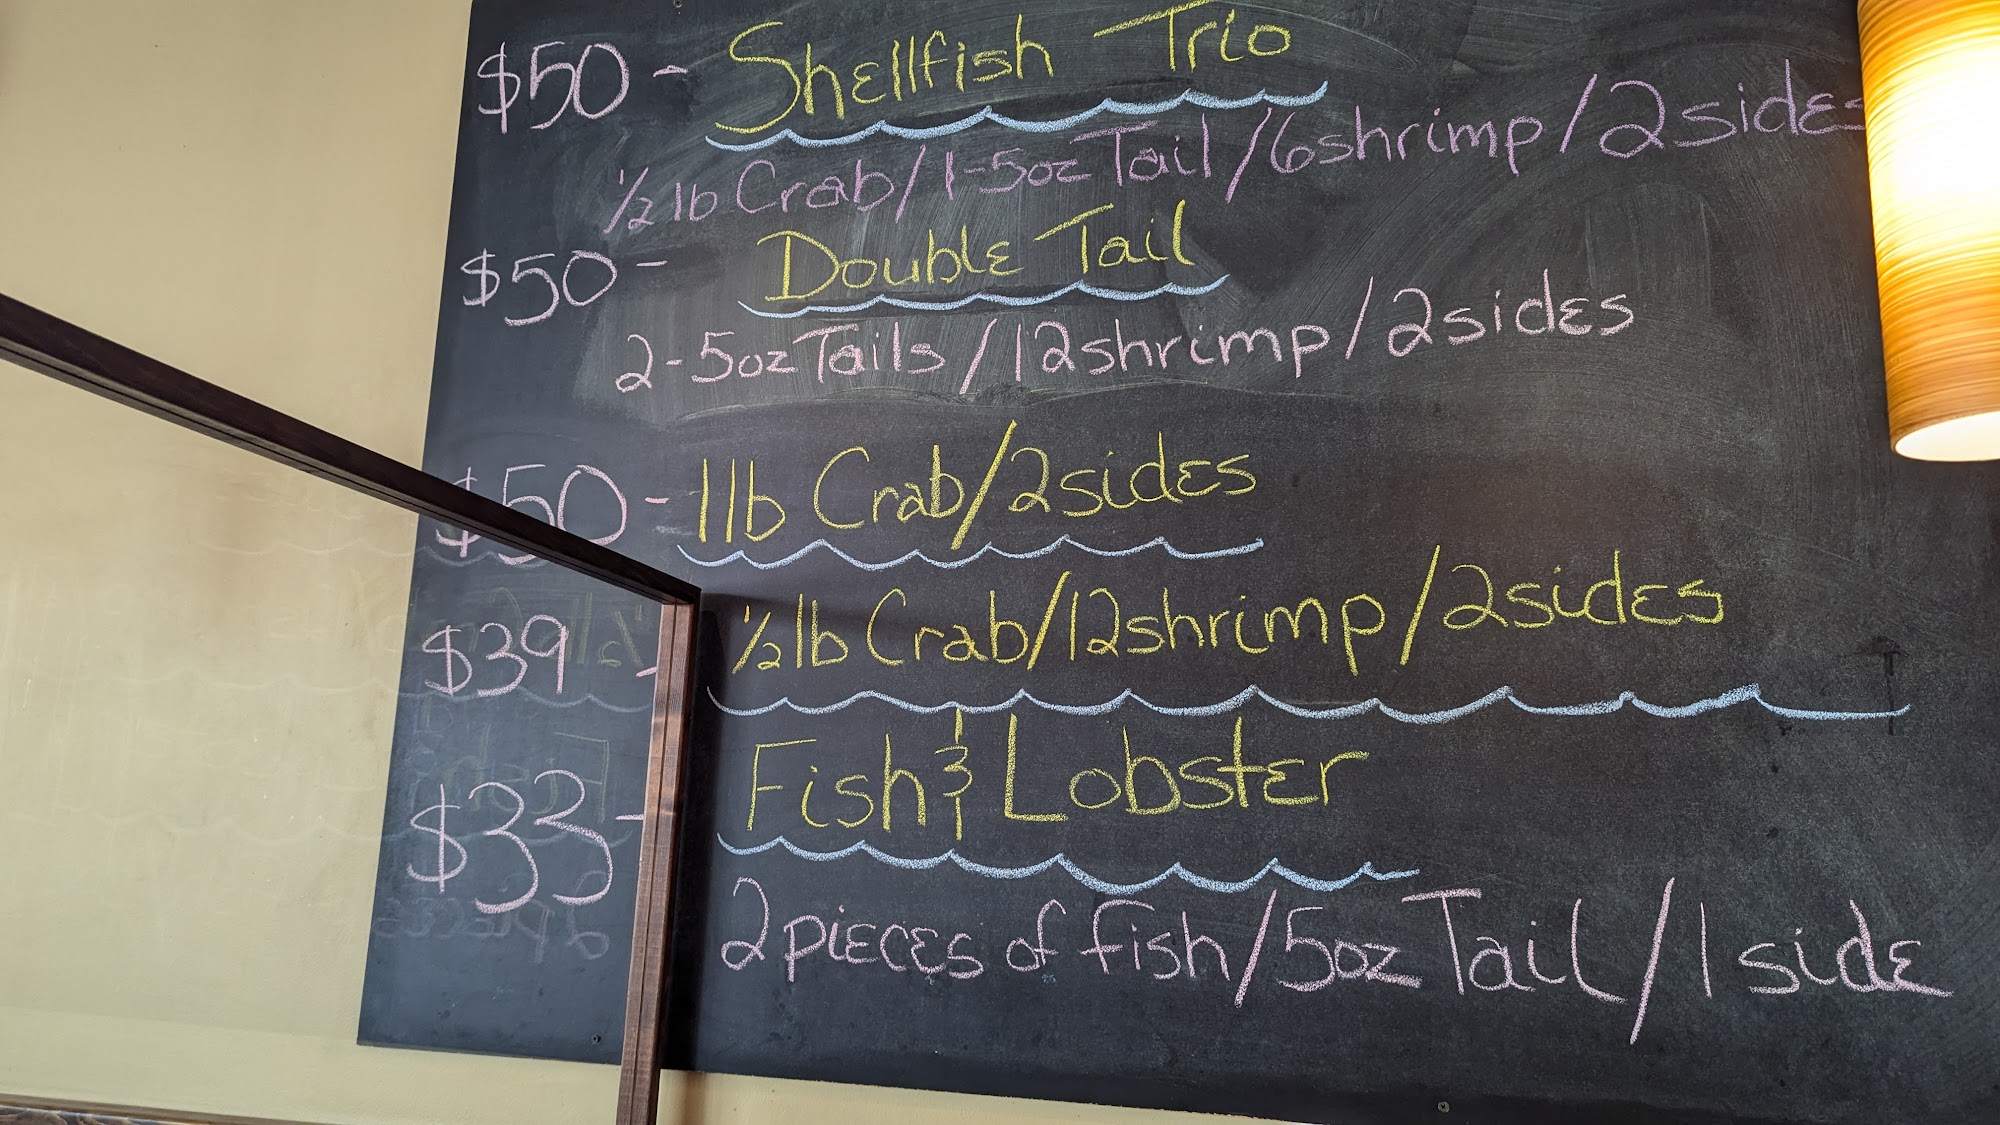 $50 - Shellfish Trio
1/2 lb Crab/1-5oz Tail/6 shrimp/2 sides
$50 - Double Tail
2-5oz Tails/12 shrimp/2 sides
$50 - 1 lb Crab/2 sides
$39 - 1/2 lb Crab/12 shrimp/2 sides
$33 - Fish & Lobster
2 pieces of fish/5oz Tail/1 side